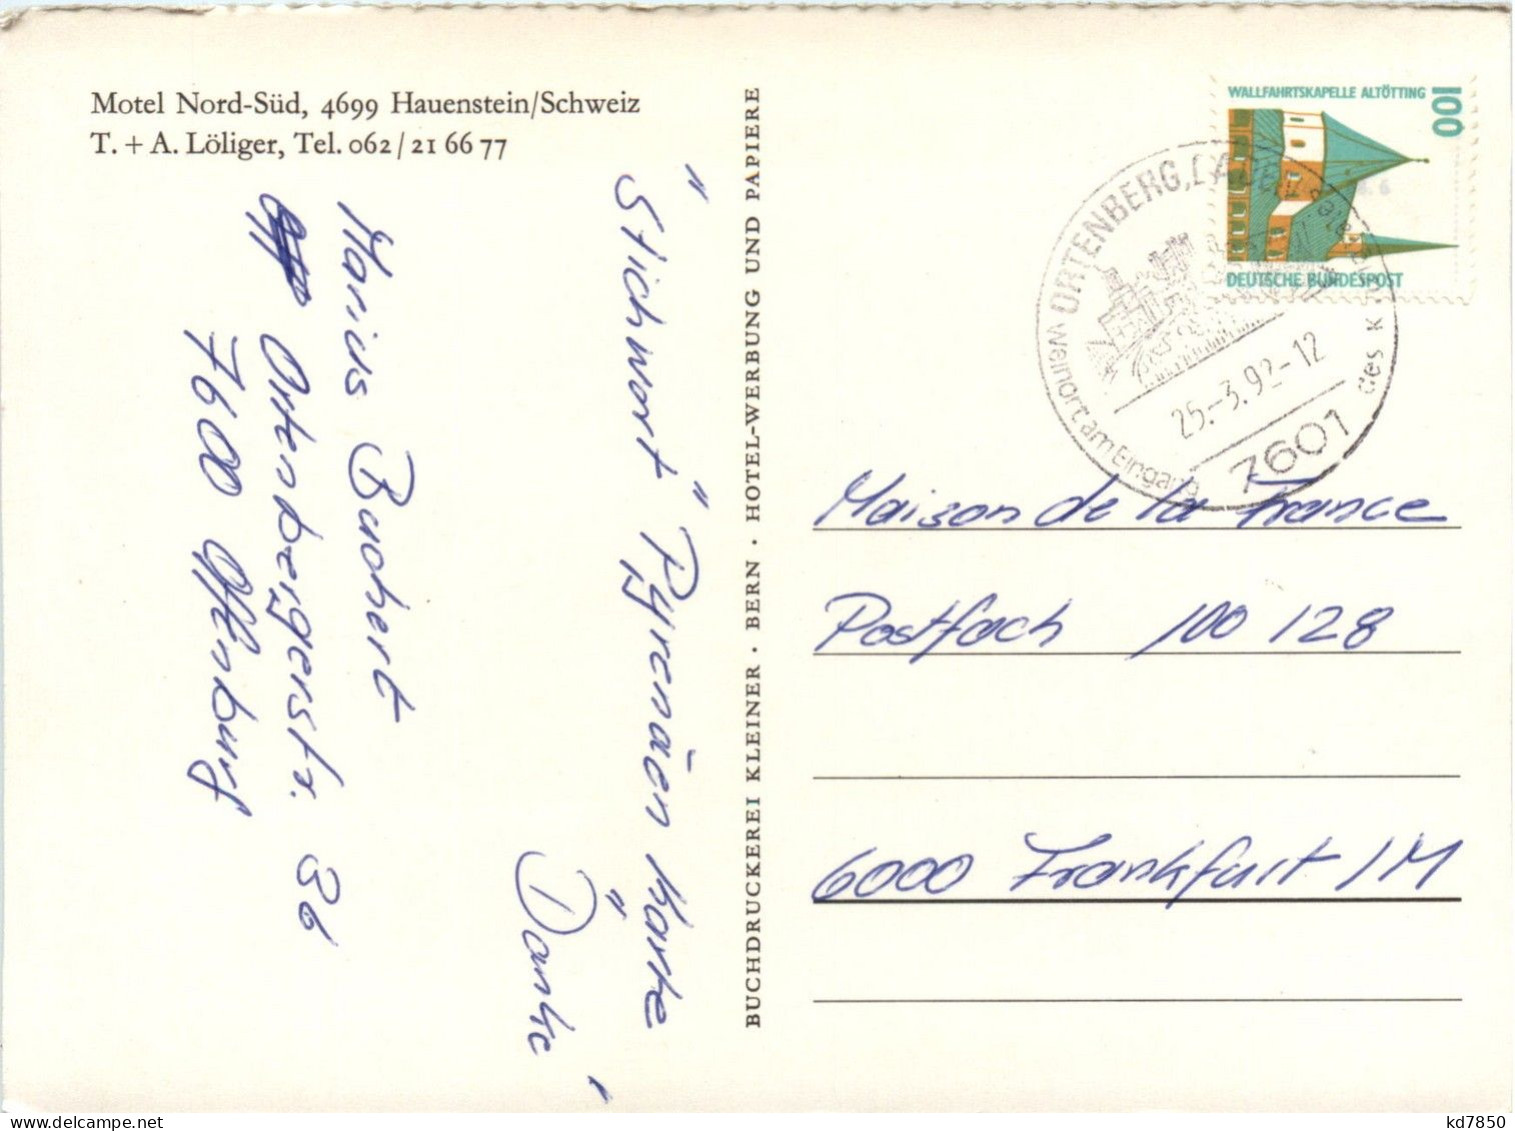 Motel Nord-Süd, 4699 Hauenstein/Schweiz
T. + A. Löliger, Tel. 062/21 66 77
Marius Buchert
Ortenbergerstr. 36
7600 Offenburg
"Stichwort" Pyrenäen Karte"
Danke"
BUCHDRUCKEREI KLEINER · BERN · HOTEL-WERBUNG UND PAPIERE
WALLFAHRTSKAPELLE ALTÖTTING
100
DEUTSCHE BUNDESPOST
ORTENBERG,
Weinort am Eingang des
25.-3.92-12
7601
Maison de la France
Postfach 100 128
6000 Frankfurt / M
kd7850